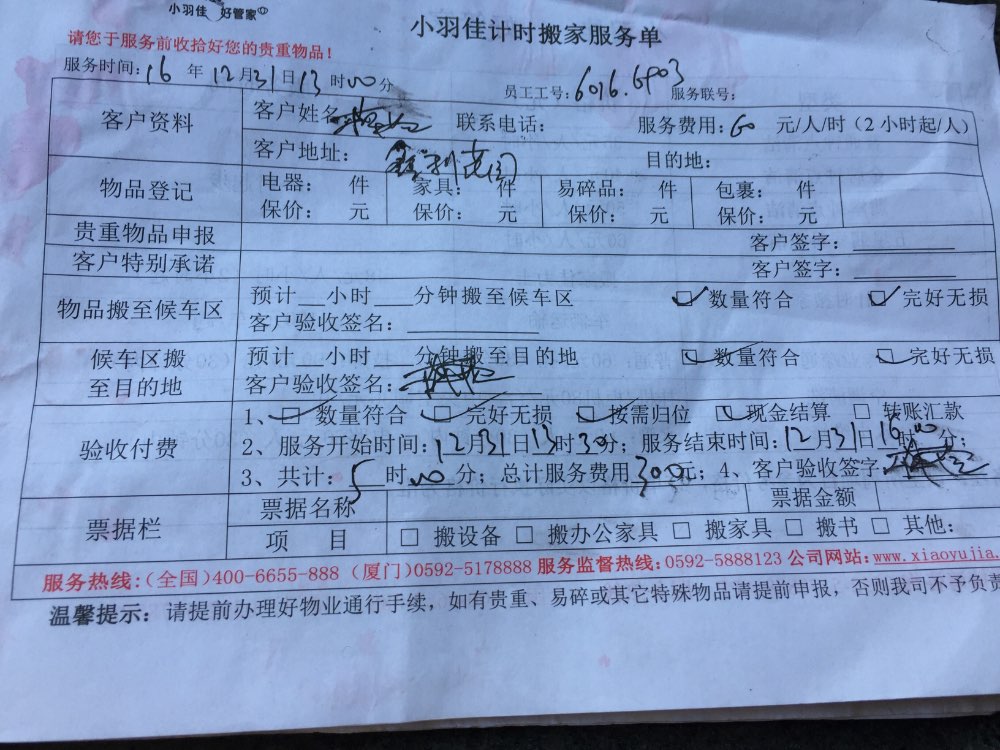 小羽佳 好管家
小羽佳计时搬家服务单
请您于服务前收拾好您的贵重物品！
服务时间：16 年 12月31日13 时00分 员工工号：6016.6903 服务联号：
客户资料 客户姓名 联系电话： 服务费用：60 元/人/时（2小时起/人）
客户地址： 目的地：
物品登记 电器： 件 家具： 件 易碎品： 件 包裹： 件
保价： 元 保价： 元 保价： 元 保价： 元
贵重物品申报 客户签字：
客户特别承诺 客户签字：
物品搬至候车区 预计__小时___分钟搬至候车区 ☑数量符合 ☑完好无损
客户验收签名：
候车区搬至目的地 预计__小时___分钟搬至目的地 ☑数量符合 ☑完好无损
客户验收签名：
验收付费 1、☑数量符合 ☑完好无损 ☑按需归位 ☑现金结算 □转账汇款
2、服务开始时间：12月31日13时30分；服务结束时间：12月31日16时00分；
3、共计：5时00分；总计服务费用300元；4、客户验收签字
票据栏 票据名称 票据金额
项 目 □ 搬设备 □ 搬办公家具 □ 搬家具 □ 搬书 □ 其他：
服务热线：（全国）400-6655-888（厦门）0592-5178888 服务监督热线：0592-5888123 公司网站：www.xiaoyujia.
温馨提示：请提前办理好物业通行手续，如有贵重、易碎或其它特殊物品请提前申报，否则我司不予负责